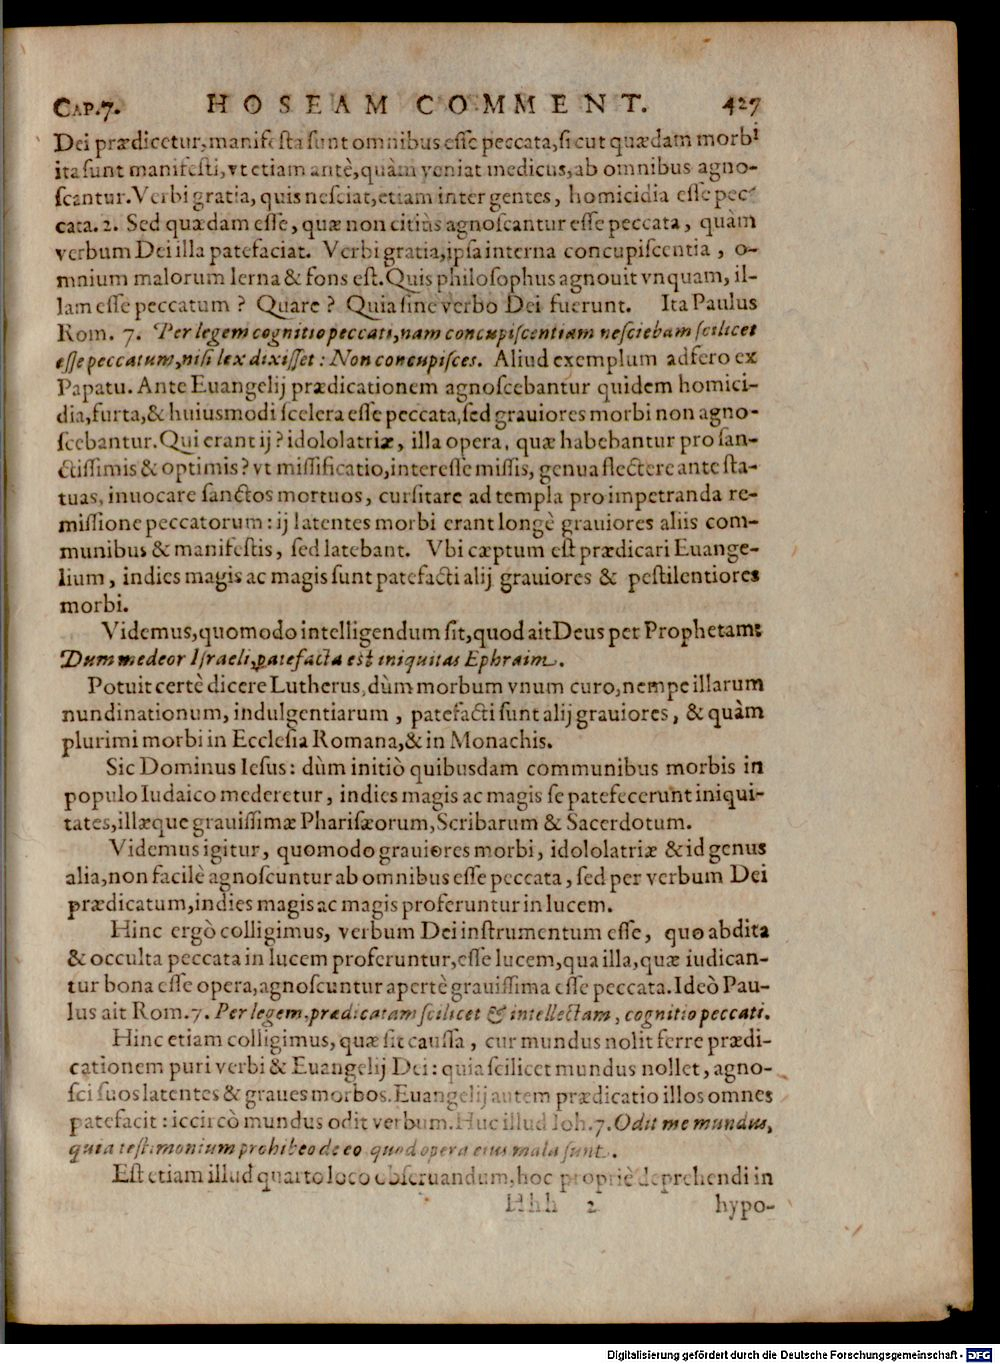 CAP.7. HOSEAM COMMENT. 427
Dei prædicetur, manifesta sunt omnibus esse peccata, sicut quædam morbi
ita sunt manifesti, vt etiam antè, quàm veniat medicus, ab omnibus agno-
scantur. Verbi gratia, quis nesciat, etiam inter gentes, homicidia esse pec-
cata. 2. Sed quædam esse, quæ non citiùs agnoscantur esse peccata, quàm
verbum Dei illa patefaciat. Verbi gratia, ipsa interna concupiscentia, o-
mnium malorum lerna & fons est. Quis philosophus agnouit vnquam, il-
lam esse peccatum? Quare? Quia sine verbo Dei fuerunt. Ita Paulus
Rom. 7. Per legem cognitio peccati, nam concupiscentiam nesciebam scilicet
esse peccatum, nisi lex dixisset: Non concupisces. Aliud exemplum adfero ex
Papatu. Ante Euangelij prædicationem agnoscebantur quidem homici-
dia, furta, & huiusmodi scelera esse peccata, sed grauiores morbi non agno-
scebantur. Qui erant ij? idololatriæ, illa opera, quæ habebantur pro san-
ctissimis & optimis? vt missificatio, interesse missis, genua flectere ante sta-
tuas, inuocare sanctos mortuos, cursitare ad templa pro impetranda re-
missione peccatorum: ij latentes morbi erant longè grauiores aliis com-
munibus & manifestis, sed latebant. Vbi cæptum est prædicari Euange-
lium, indies magis ac magis sunt patefacti alij grauiores & pestilentiores
morbi.
Videmus, quomodo intelligendum sit, quod ait Deus per Prophetam:
Dum medeor Israeli, patefacta est iniquitas Ephraim.
Potuit certè dicere Lutherus, dùm morbum vnum curo, nempe illarum
nundinationum, indulgentiarum, patefacti sunt alij grauiores, & quàm
plurimi morbi in Ecclesia Romana, & in Monachis.
Sic Dominus Iesus: dùm initiò quibusdam communibus morbis in
populo Iudaico mederetur, indies magis ac magis se patefecerunt iniqui-
tates, illæque grauissimæ Pharisæorum, Scribarum & Sacerdotum.
Videmus igitur, quomodo grauiores morbi, idololatriæ & id genus
alia, non facilè agnoscuntur ab omnibus esse peccata, sed per verbum Dei
prædicatum, indies magis ac magis proferuntur in lucem.
Hinc ergò colligimus, verbum Dei instrumentum esse, quo abdita
& occulta peccata in lucem proferuntur, esse lucem, qua illa, quæ iudican-
tur bona esse opera, agnoscuntur apertè grauissima esse peccata. Ideò Pau-
lus ait Rom. 7. Per legem, prædicatam scilicet & intellectam, cognitio peccati.
Hinc etiam colligimus, quæ sit caussa, cur mundus nolit ferre prædi-
cationem puri verbi & Euangelij Dei: quia scilicet mundus nollet, agno-
sci suos latentes & graues morbos. Euangelij autem prædicatio illos omnes
patefacit: iccircò mundus odit verbum. Huc illud Ioh. 7. Odit me mundus,
quia testimonium prohibeo de eo quod opera eius mala sunt.
Est etiam illud quarto loco obseruandum, hoc propriè deprehendi in
Hhh 2 hypo-
Digitalisierung gefördert durch die Deutsche Forschungsgemeinschaft - DFG